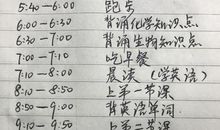 5:40—6:00 跑步
6:00—6:30 背诵化学知识点
6:30—7:00 背诵生物知识点
7:00—7:10 吃早餐
7:10—8:00 晨读（学英语）
8:10—8:50 上第一节课
8:50—9:00 背英语单词
9:10—9:50 上第二节课